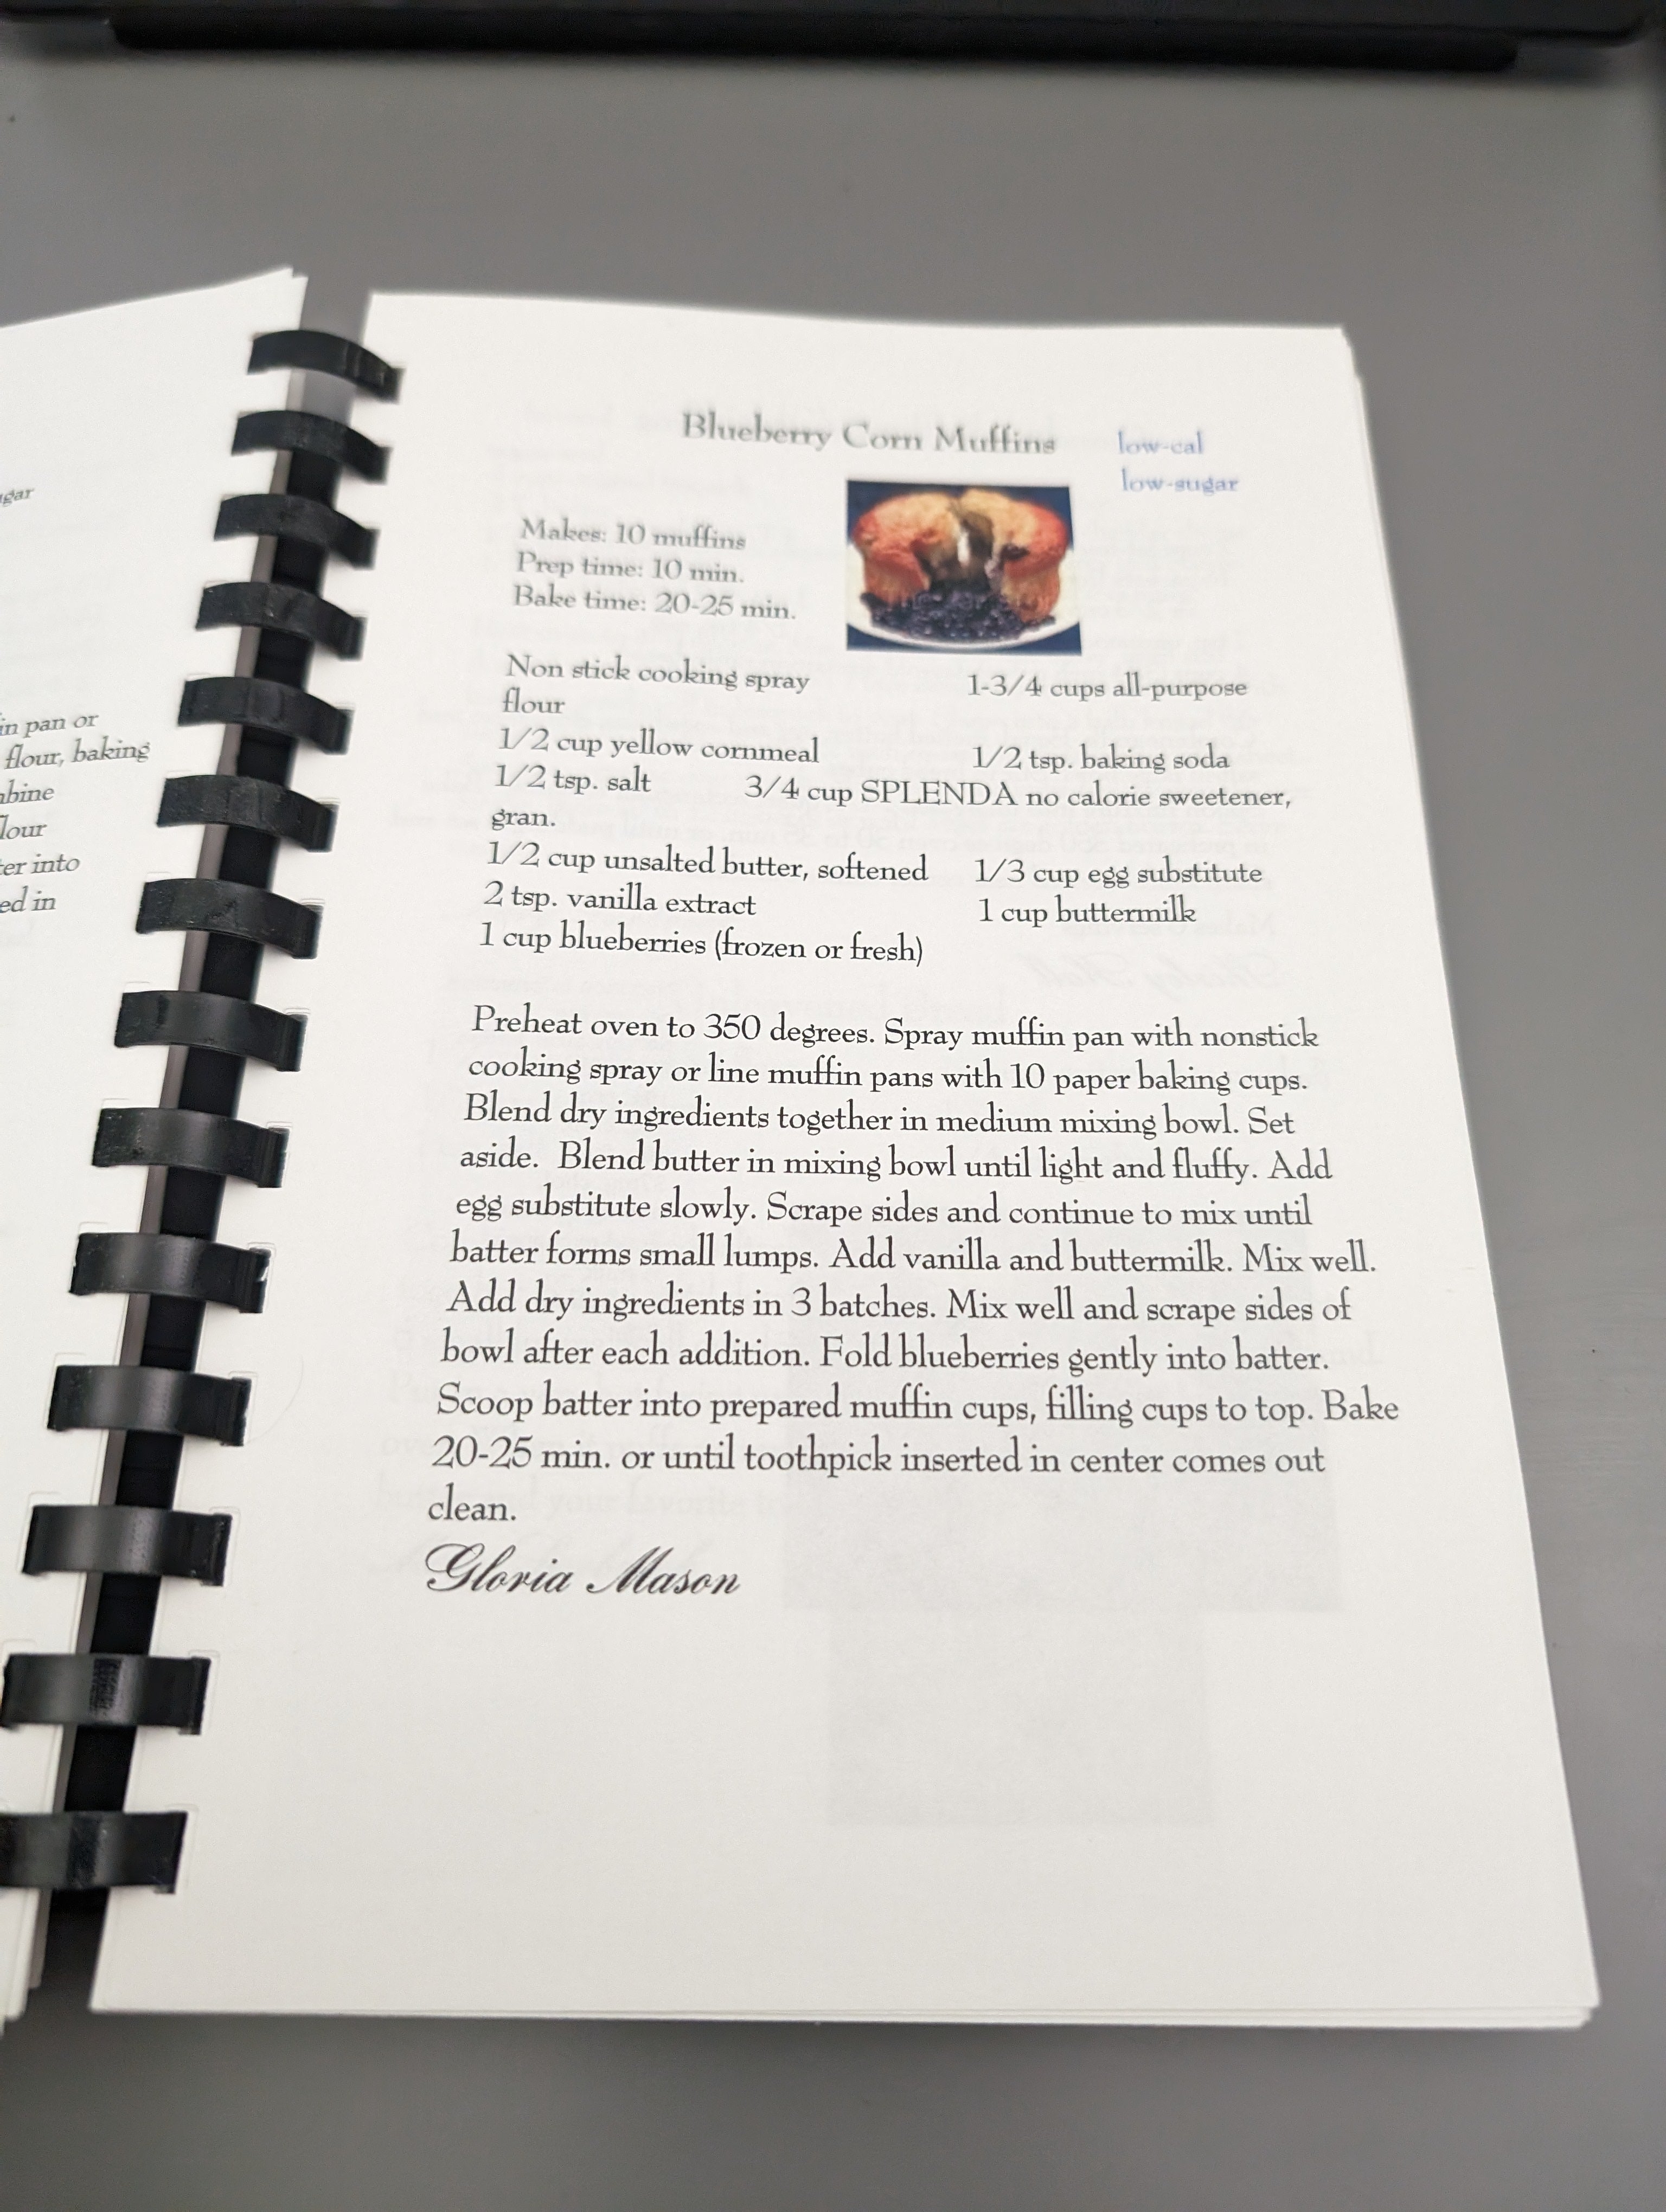 gar
in pan or
flour, baking
bine
lour
ter into
ed in
Blueberry Corn Muffins low-cal
low-sugar
Makes: 10 muffins
Prep time: 10 min.
Bake time: 20-25 min.
Non stick cooking spray 1-3/4 cups all-purpose
flour
1/2 cup yellow cornmeal 1/2 tsp. baking soda
1/2 tsp. salt 3/4 cup SPLENDA no calorie sweetener,
gran.
1/2 cup unsalted butter, softened 1/3 cup egg substitute
2 tsp. vanilla extract 1 cup buttermilk
1 cup blueberries (frozen or fresh)
Preheat oven to 350 degrees. Spray muffin pan with nonstick
cooking spray or line muffin pans with 10 paper baking cups.
Blend dry ingredients together in medium mixing bowl. Set
aside. Blend butter in mixing bowl until light and fluffy. Add
egg substitute slowly. Scrape sides and continue to mix until
batter forms small lumps. Add vanilla and buttermilk. Mix well.
Add dry ingredients in 3 batches. Mix well and scrape sides of
bowl after each addition. Fold blueberries gently into batter.
Scoop batter into prepared muffin cups, filling cups to top. Bake
20-25 min. or until toothpick inserted in center comes out
clean.
Gloria Mason